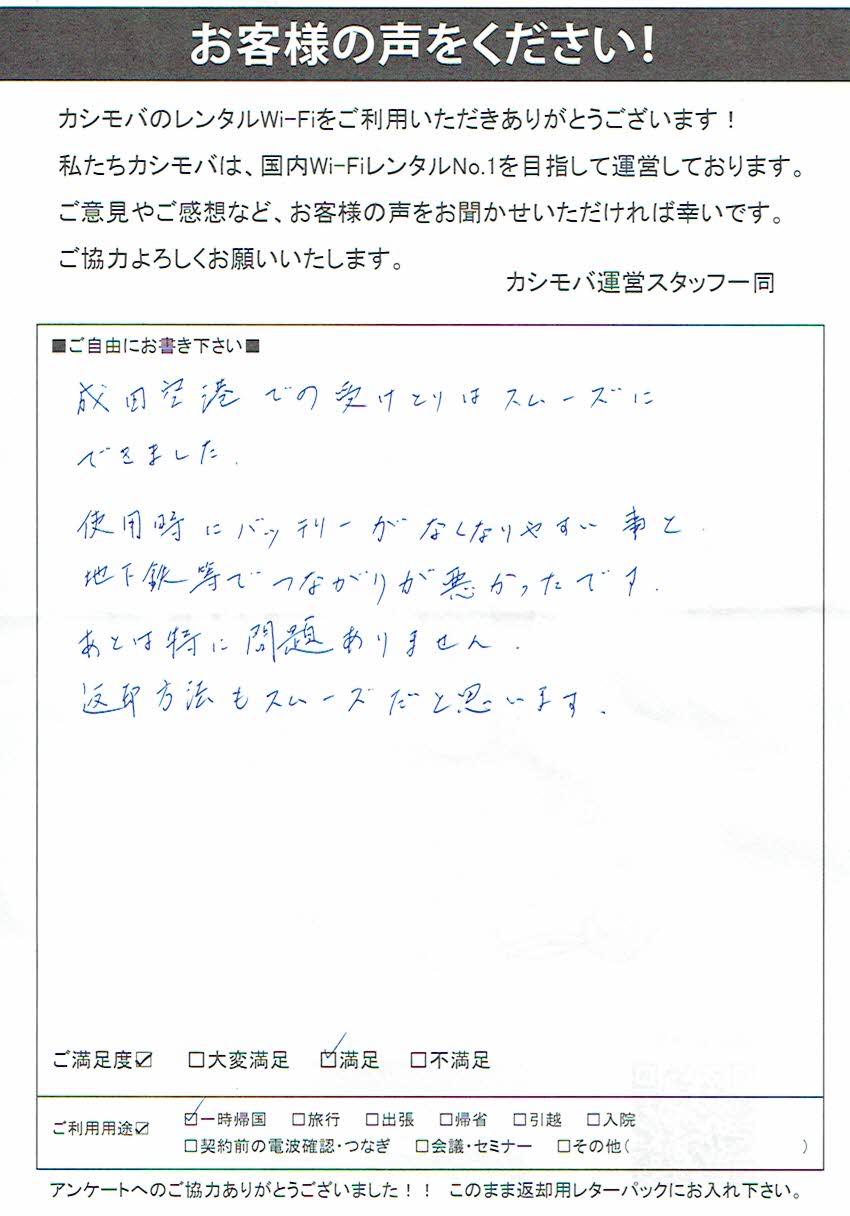 お客様の声をください!
カシモバのレンタルWi-Fiをご利用いただきありがとうございます!
私たちカシモバは、国内Wi-FiレンタルNo.1を目指して運営しております。
ご意見やご感想など、お客様の声をお聞かせいただければ幸いです。
ご協力よろしくお願いいたします。
カシモバ運営スタッフ一同
■ご自由にお書き下さい■
成田空港での受けとりはスムーズに
できました.
使用時にバッテリーがなくなりやすい事と.
地下鉄等でつながりが悪かったです.
あとは特に問題ありません.
返却方法もスムーズだと思います.
ご満足度☑ □大変満足 ☑満足 □不満足
ご利用用途☑ ☑一時帰国 □旅行 □出張 □帰省 □引越 □入院
□契約前の電波確認・つなぎ □会議・セミナー □その他( )
アンケートへのご協力ありがとうございました!! このまま返却用レターパックにお入れ下さい。